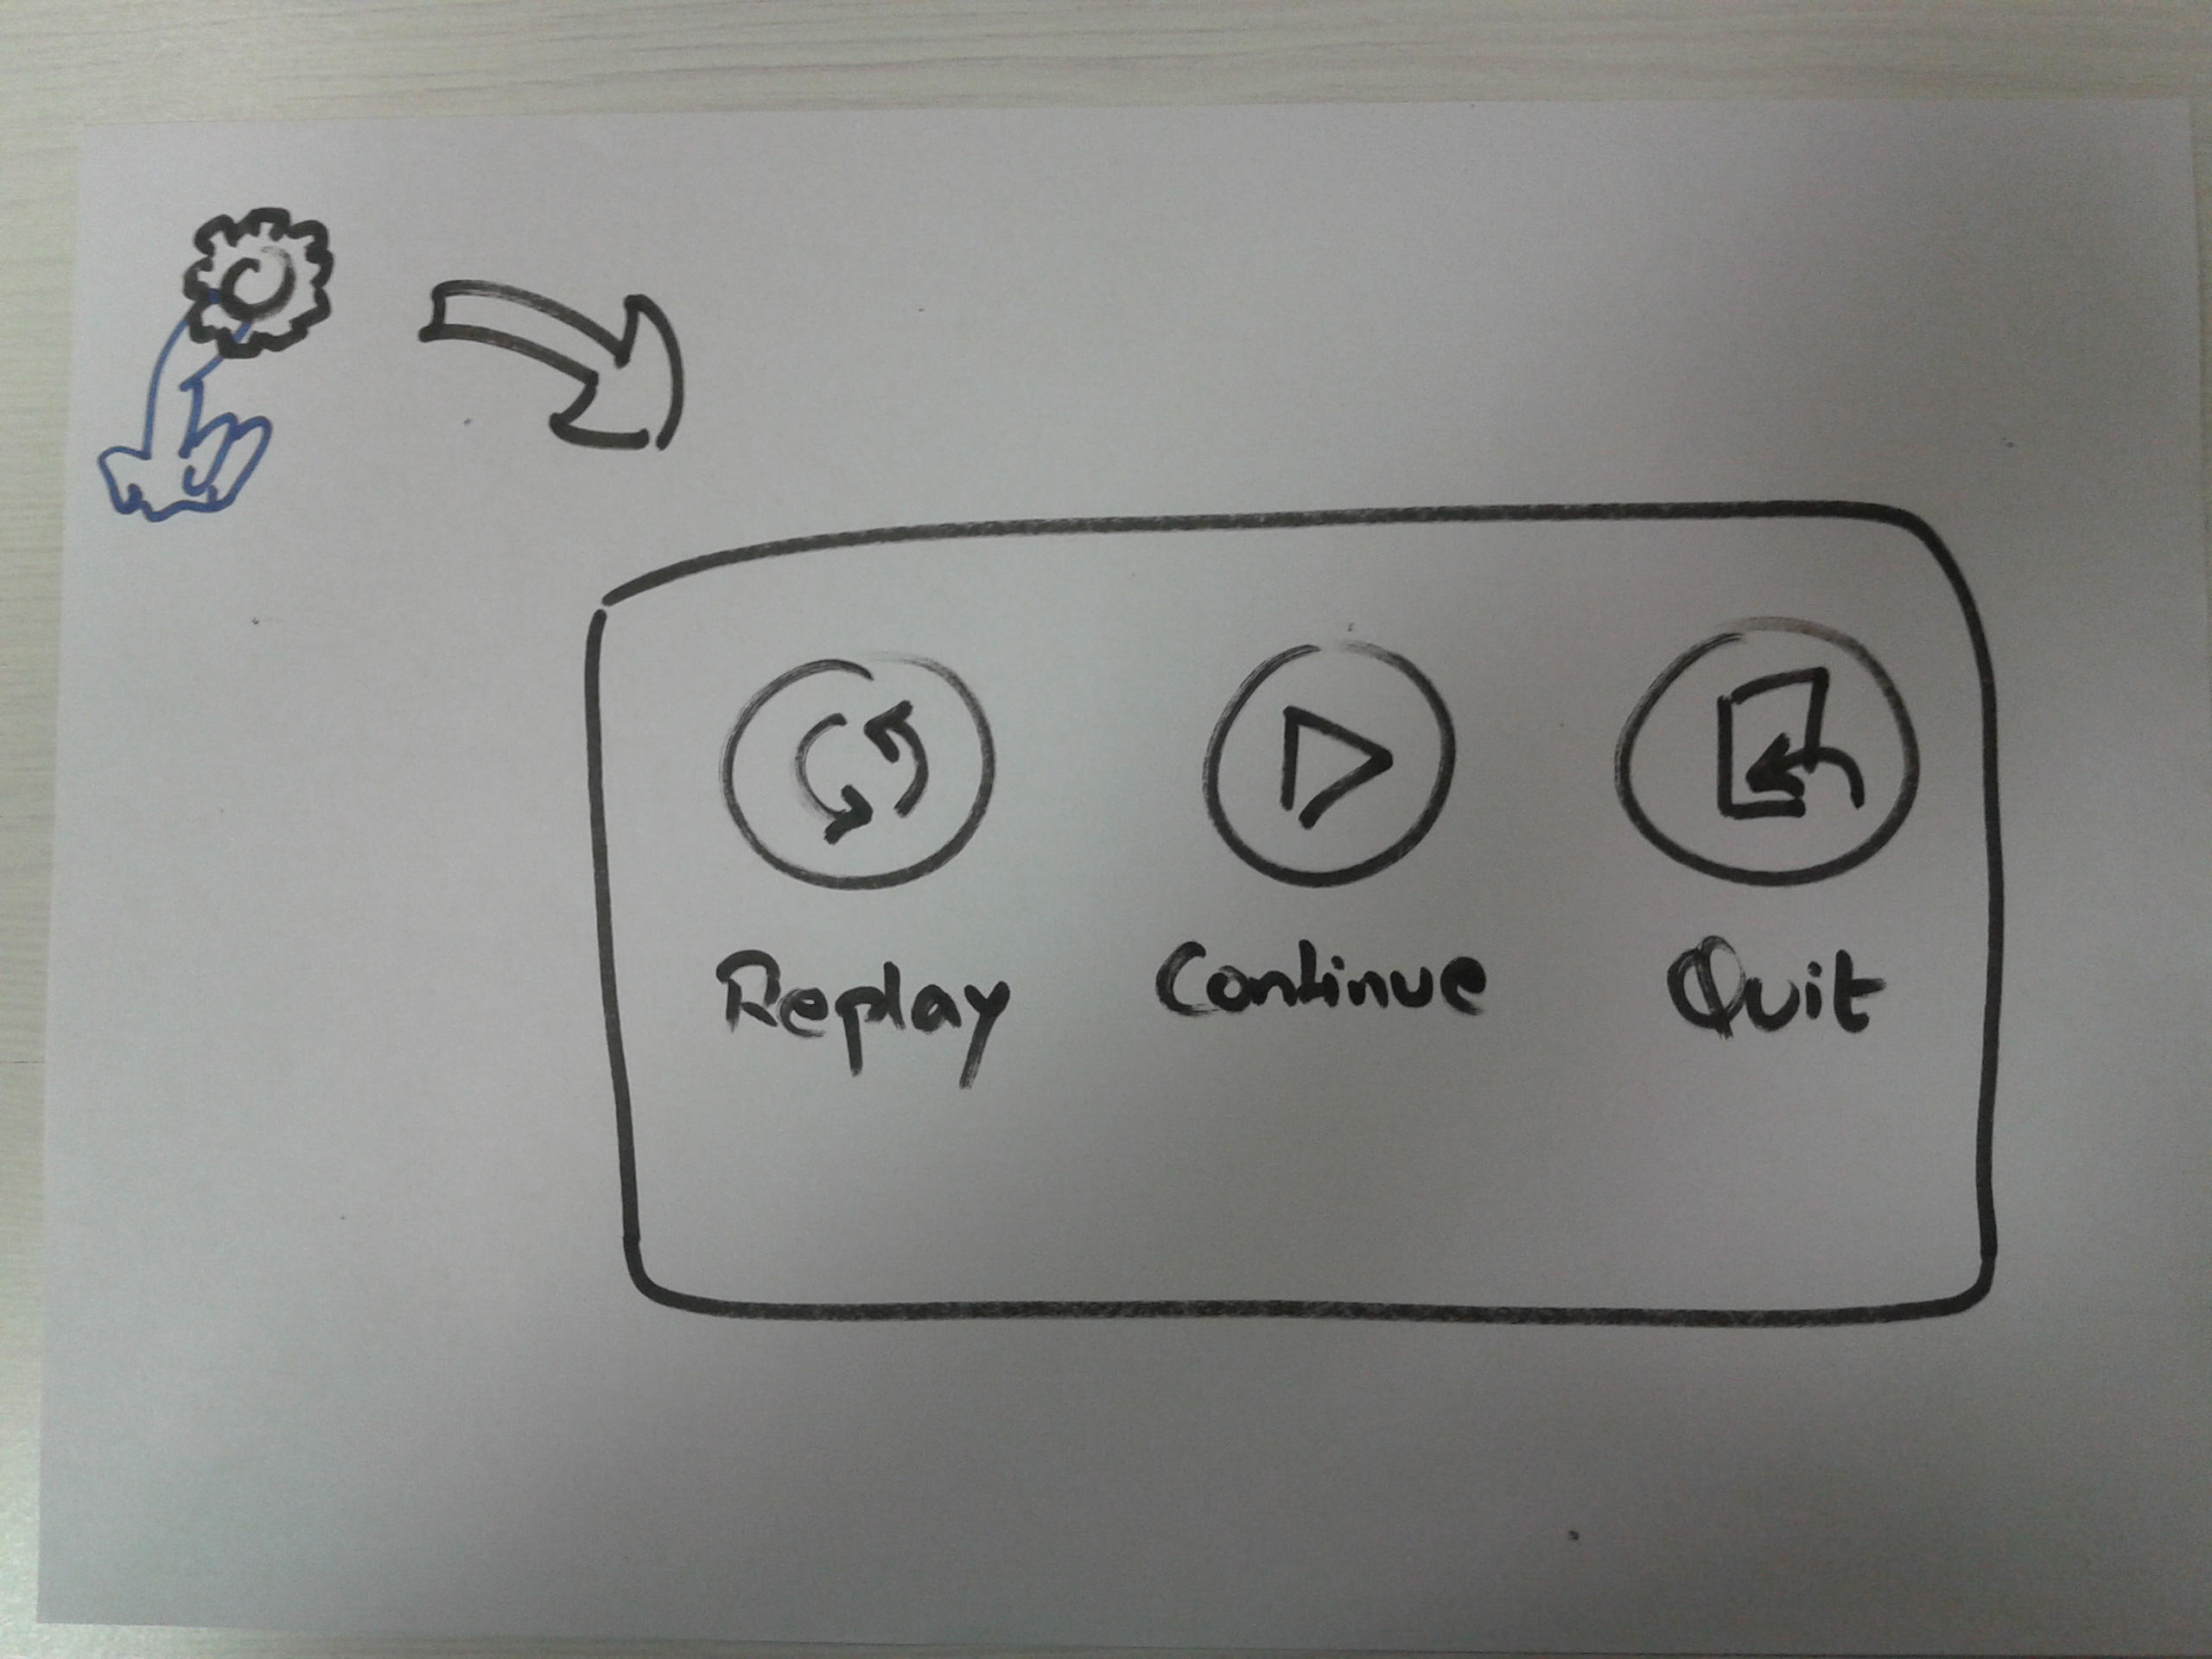 Replay Continue Quit